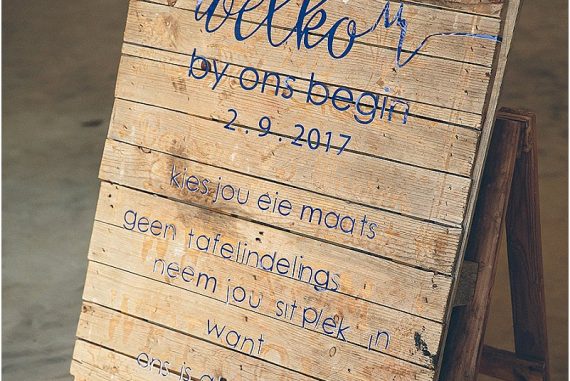 welkom
by ons begin
2.9.2017
kies jou eie maats
geen tafelindelings
neem jou sitplek in
want
ons is